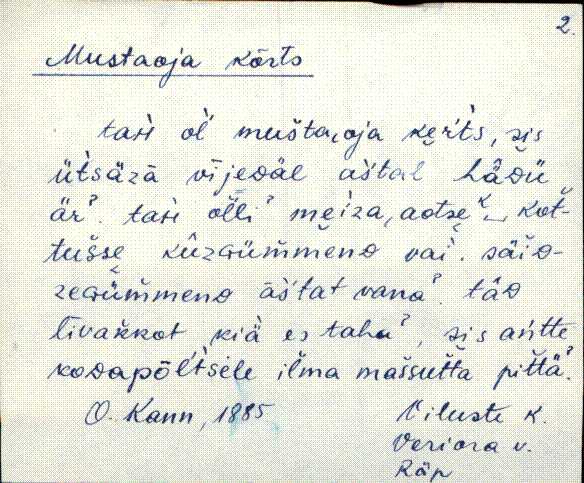 2.
Mustaoja kõrts
tań ol' mušta,oja keŕts, sis
ütsäzä vījeDäl aštal hä̀Dü
är? tań ol̆li? meiza, aotse kot-
tušse kūzGüm̆meno vai. säiD-
zeGüm̆meno āštat vana? täD
līvakkot kiä es taha?, sis añtte
koDapōĺtsele il̆ma maššutta pittä?
O. Kann, 1885
Viluste k.
Veriora v.
Räp